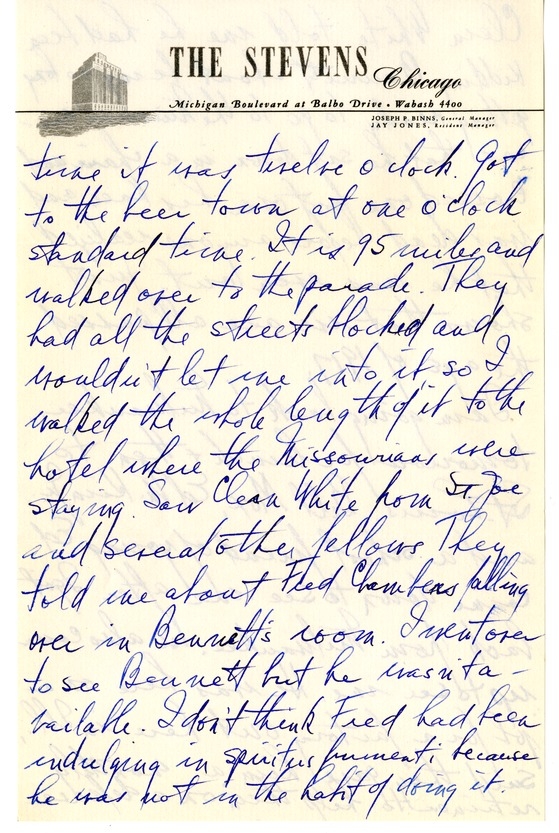 THE STEVENS
Chicago
Michigan Boulevard at Balbo Drive • Wabash 4400
JOSEPH P. BINNS, General Manager
JAY JONES, Resident Manager
time it was twelve o'clock. Got
to the beer town at one o'clock
standard time. It is 95 miles and
walked over to the parade. They
had all the streets blocked and
wouldn't let me into it so I
walked the whole length of it to the
hotel where the Missourians were
staying. Saw Clean White from St. Joe
and several other fellows They
told me about Fred Chambers falling
over in Bennett's room. I went over
to see Bennett but he wasn't a-
vailable. I don't think Fred had been
indulging in spiritus frumenti because
he was not in the habit of doing it.